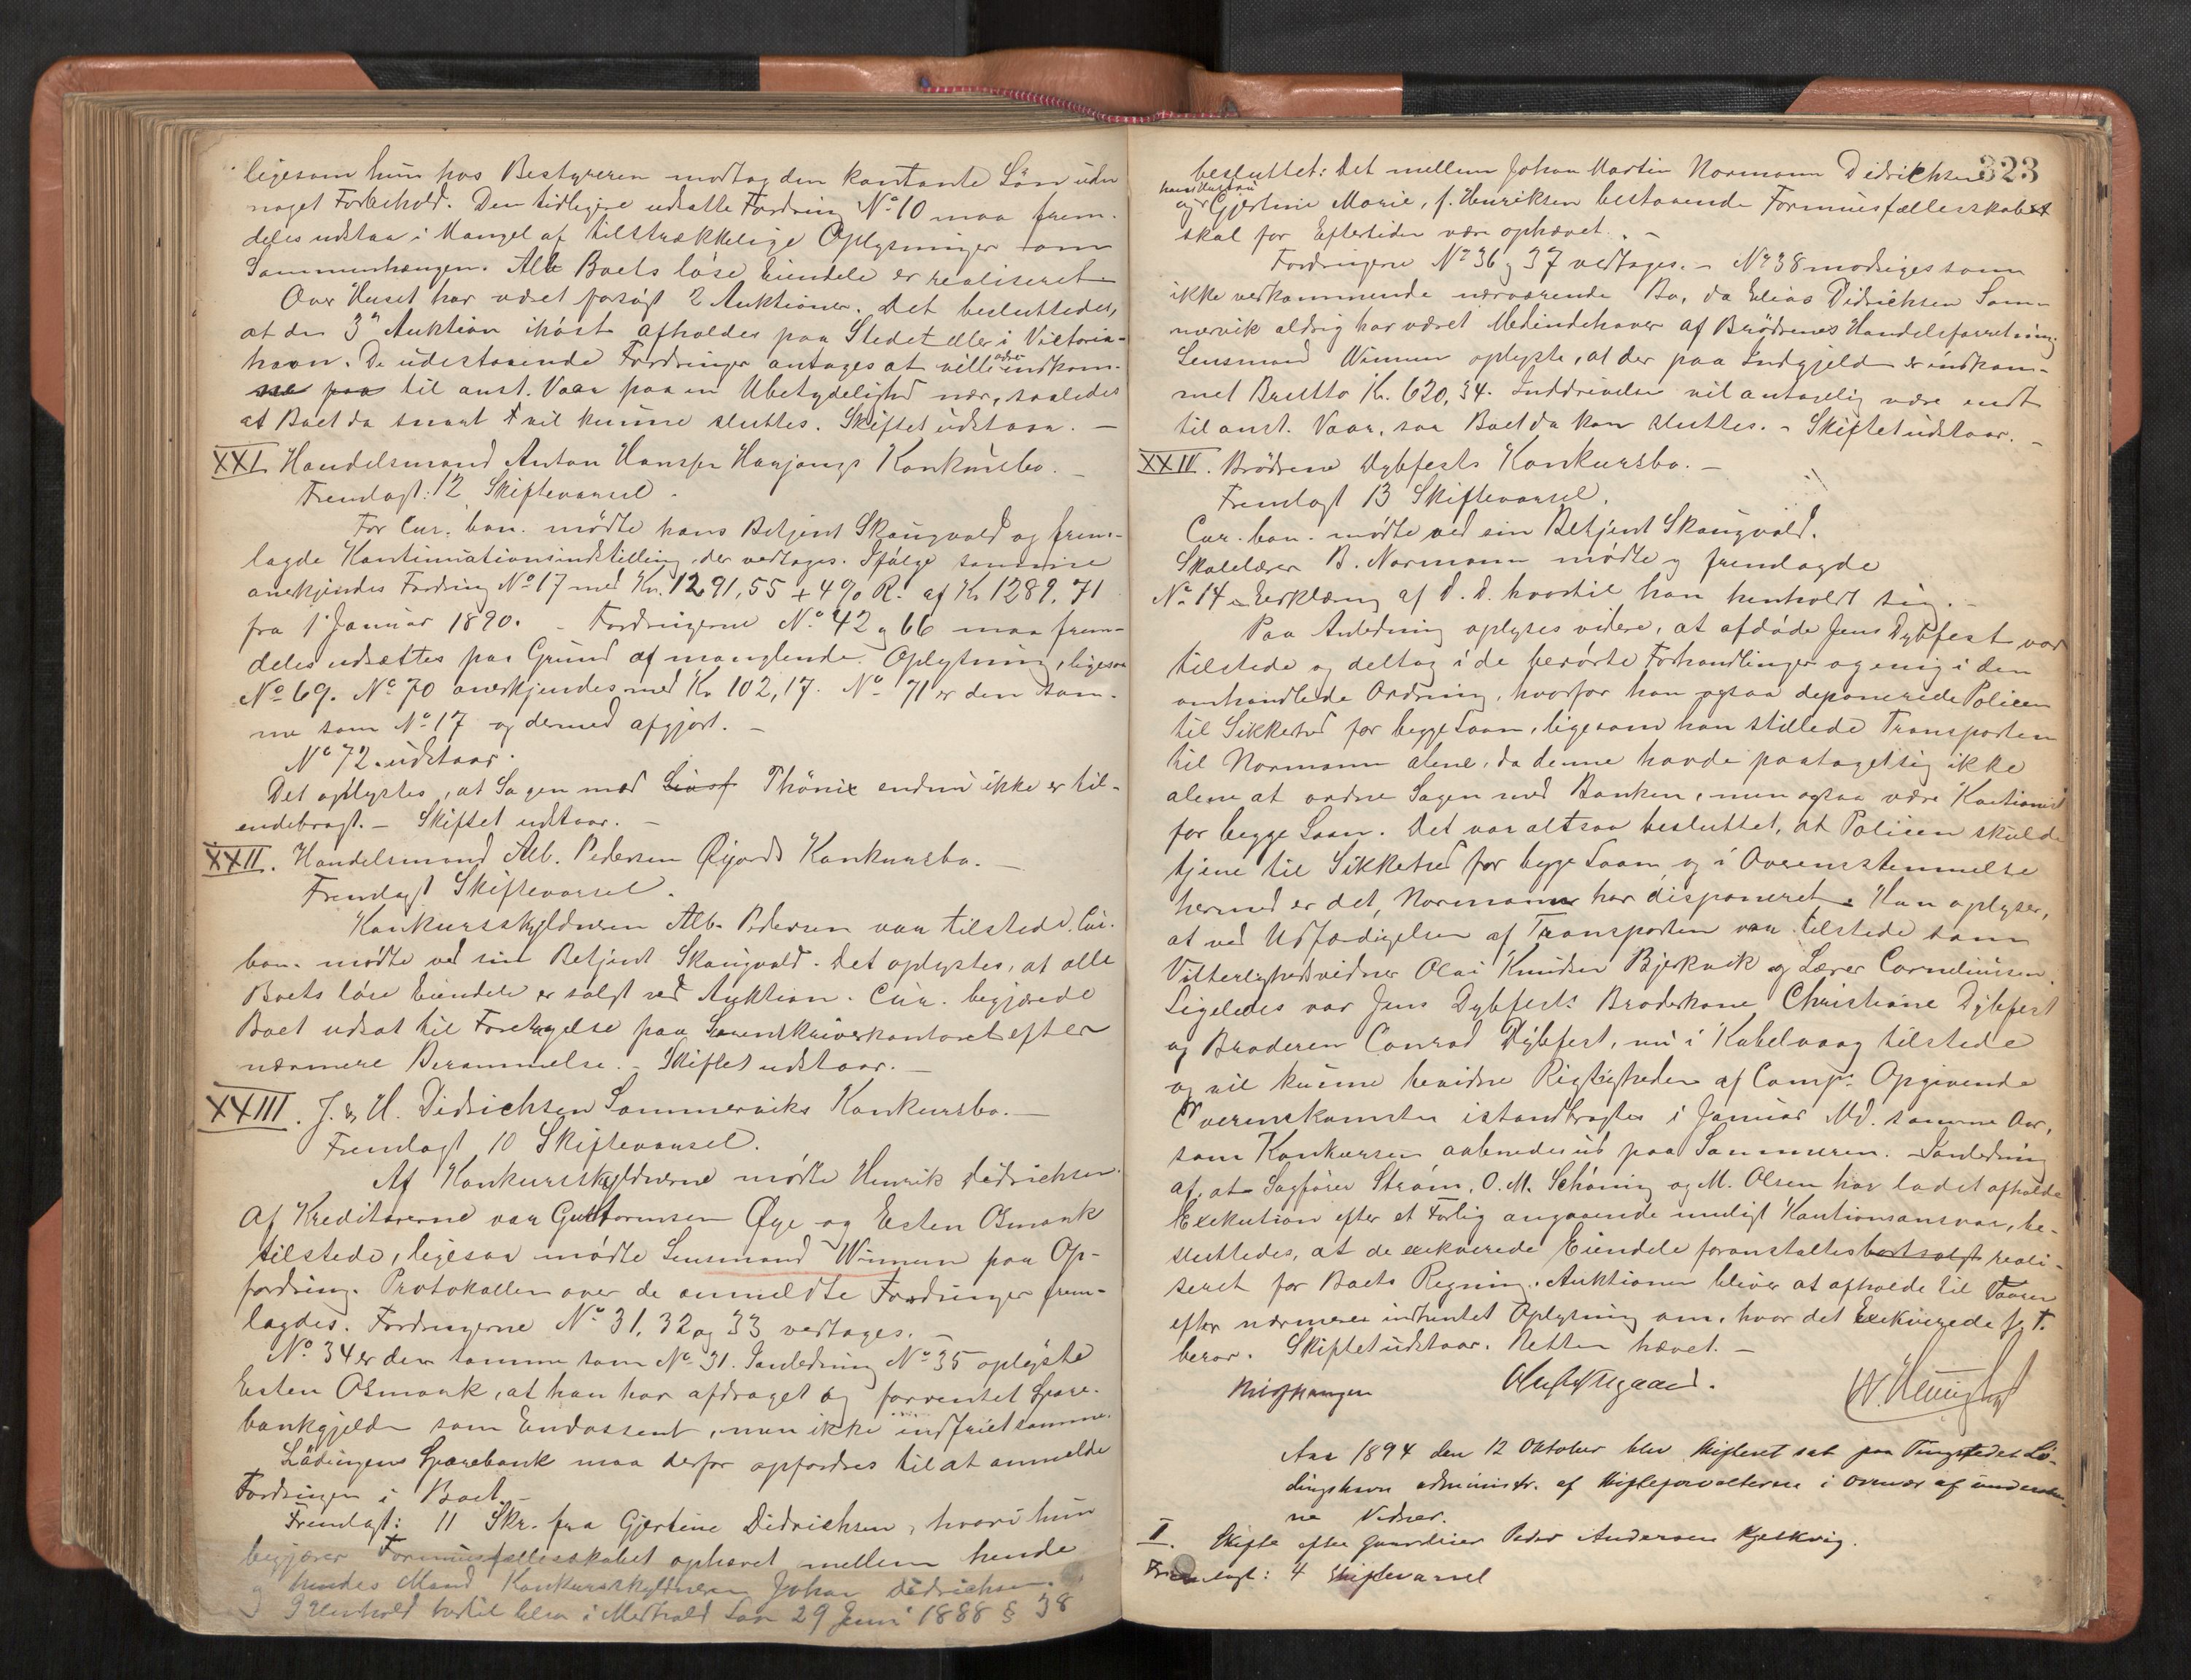 ligesom hun hos Bestyreren modtog den kontante Løn uden
noget Forbehold. Den tidligere udsatte Fordring No 10 maa frem-
deles udstaa i Mangel af tilstrækkelige Oplysninger om
Sammenhængen. Alle Boets løse Eiendele er realiseret
Over Huset har været forsøgt 2 Auktioner. Det besluttedes,
at den 3die Auktion ihøst afholdes paa Stedet eller i Victoria-
havn. De udestaaende Fordringer antages at ville indkom-
me paa til anst. Vaar paa en Ubetydelighed nær, saaledes
at Boet da snart vil kunne sluttes. Skiftet udstaar. —
XXI. Handelsmand Anton Hansen Harjangs Konkursbo. —
Fremlagt: 12 Skiftevarsel.
For Cur. bon. mødte hans Betjent Skaugvold og frem-
lagde Kontinuationsindstilling, der vedtages. Ifølge samme
anerkjendes Fordring No 17 med Kr. 1291,55 + 4% R. af Kr 1289,71
fra 1 Januar 1890. – Fordringerne No 42 og 66 maa frem-
deles udsættes paa Grund af manglende Oplysning, ligesom
No 69. No 70 anerkjendes med Kr 102,17. No 71 er den sam-
me som No 17 og dermed afgjort. —
No 72 udstaar.
Det oplystes, at Sagen mod Phønix endnu ikke er til-
endebragt. – Skiftet udstaar. —
XXII. Handelsmand Alb. Pedersen Øijords Konkursbo. —
Fremlagt Skiftevarsel.
Konkursskyldneren Alb. Pedersen var tilstede. Cur.
bon. mødte ved sin Betjent Skaugvold. Det oplystes, at alle
Boets løse Eiendele er solgt ved Auktion. Cur. begjærede
Boet udsat til Foretagelse paa Sorenskriverkontoret efter
nærmere Berammelse. – Skiftet udstaar. —
XXIII. J. & H. Didrichsen Sommerviks Konkursbo. —
Fremlagt 10 Skiftevarsel.
Af Konkursskyldnerne mødte Henrik Didrichsen.
Af Kreditorerne var Guttormsen Øye og Esten Osmark
tilstede, ligesaa mødte Lensmand Winnem paa Op-
fordring. Protokollen over de anmeldte Fordringer frem-
lagdes. Fordringerne No 31, 32 og 33 vedtages. —
No 34 er den samme som No 31. I anledning No 35 oplyste
Esten Osmark, at han har afdraget og forrentet Spare-
bankgjelden som Endossent, men ikke indfriet samme.
Lødingens Sparebank maa derfor opfordres til at anmelde
Fordringen i Boet. –
Fremlagt: 11 Skr. fra Gjertine Didrichsen, hvori hun
begjærer Formuesfællesskabet ophævet mellem hende
og hendes Mand Konkursskyldneren Johan Didrichsen.
I Henhold hertil blev i Medhold Lov 29 Juni 1888 § 38
323
besluttet: Det mellem Johan Martin Normann Didrichsen
hans Hustru
og Gjertine Marie, f. Henriksen bestaaende Formuesfællesskabet
skal for Eftertiden være ophævet. –
Fordringerne No 36 og 37 vedtages. – No 38 modsiges som
ikke vedkommende nærværende Bo, da Elias Didrichsen Som-
mervik aldrig har været Medindehaver af Brødrenes Handelsforretning.
Lensmand Winnem oplyste, at der paa Indgjeld er indkom-
met Brutto Kr. 620,34. Inddrivelsen vil antagelig være endt
til anst. Vaar, saa Boet da kan sluttes. – Skiftet udstaar. –
XXIV. Brødrene Dybfests Konkursbo. —
Fremlagt 13 Skiftevarsel.
Cur. bon. mødte ved sin Betjent Skaugvold.
Skolelærer B. Normann mødte og fremlagde
No 14 Erklæring af d. D. hvortil han henholdt sig. –
Paa Anledning oplyses videre, at afdøde Jens Dybfest var
tilstede og deltog i de berørte Forhandlinger og enig i den
omhandlede Ordning, hvorfor han ogsaa deponerede Policen
til Sikkerhed for begge Laan, ligesom han stillede Transporten
til Normann alene, da denne havde paataget sig ikke
alene at ordne Sagen med Banken, men ogsaa være Kautionist
for begge Laan. Det var altsaa besluttet, at Policen skulde
tjene til Sikkerhed for begge Laan og i Overensstemmelse
hermed er det, Normann har disponeret. Han oplyser,
at ved Udfærdigelsen af Transporten var tilstede som
Vitterlighedsvidner Olai Knudsen Bjerkvik og Lærer Corneliussen.
Ligeledes var Jens Dybfests Broderkone Christiane Dybfest
og Broderen Conrad Dybfest, nu i Kabelvaag tilstede
og vil kunne bevidne Rigtigheden af Comp. Opgivende
Overenskomsten istandbragtes i Januar Md. samme Aar,
som Konkursen aabnedes ud paa Sommeren. – I anledning
af, at Sagfører Strøm, O. M. Schøning og M. Olsen har ladet afholde
Exekution efter et Forlig angaaende muligt Kautionsansvar, be-
sluttedes, at de exekverede Eiendele foranstaltes bortsolgt reali-
seret for Boets Regning. Auktionen bliver at afholde til Vaaren
efter nærmere indhentet Oplysning om, hvor det Exekverede f. T.
beror. Skiftet udstaar. Retten hævet. —
Aar 1894 den 12 Oktober blev Skifteret sat paa Tingstedet Lø-
dingshavn administr. af Skifteforvalteren i Overvær af underskrev-
ne Vidner.
II. Skifte efter Gaardeier Peder Andersen Kjelkvig.
Fremlagt: 4 Skiftevarsel